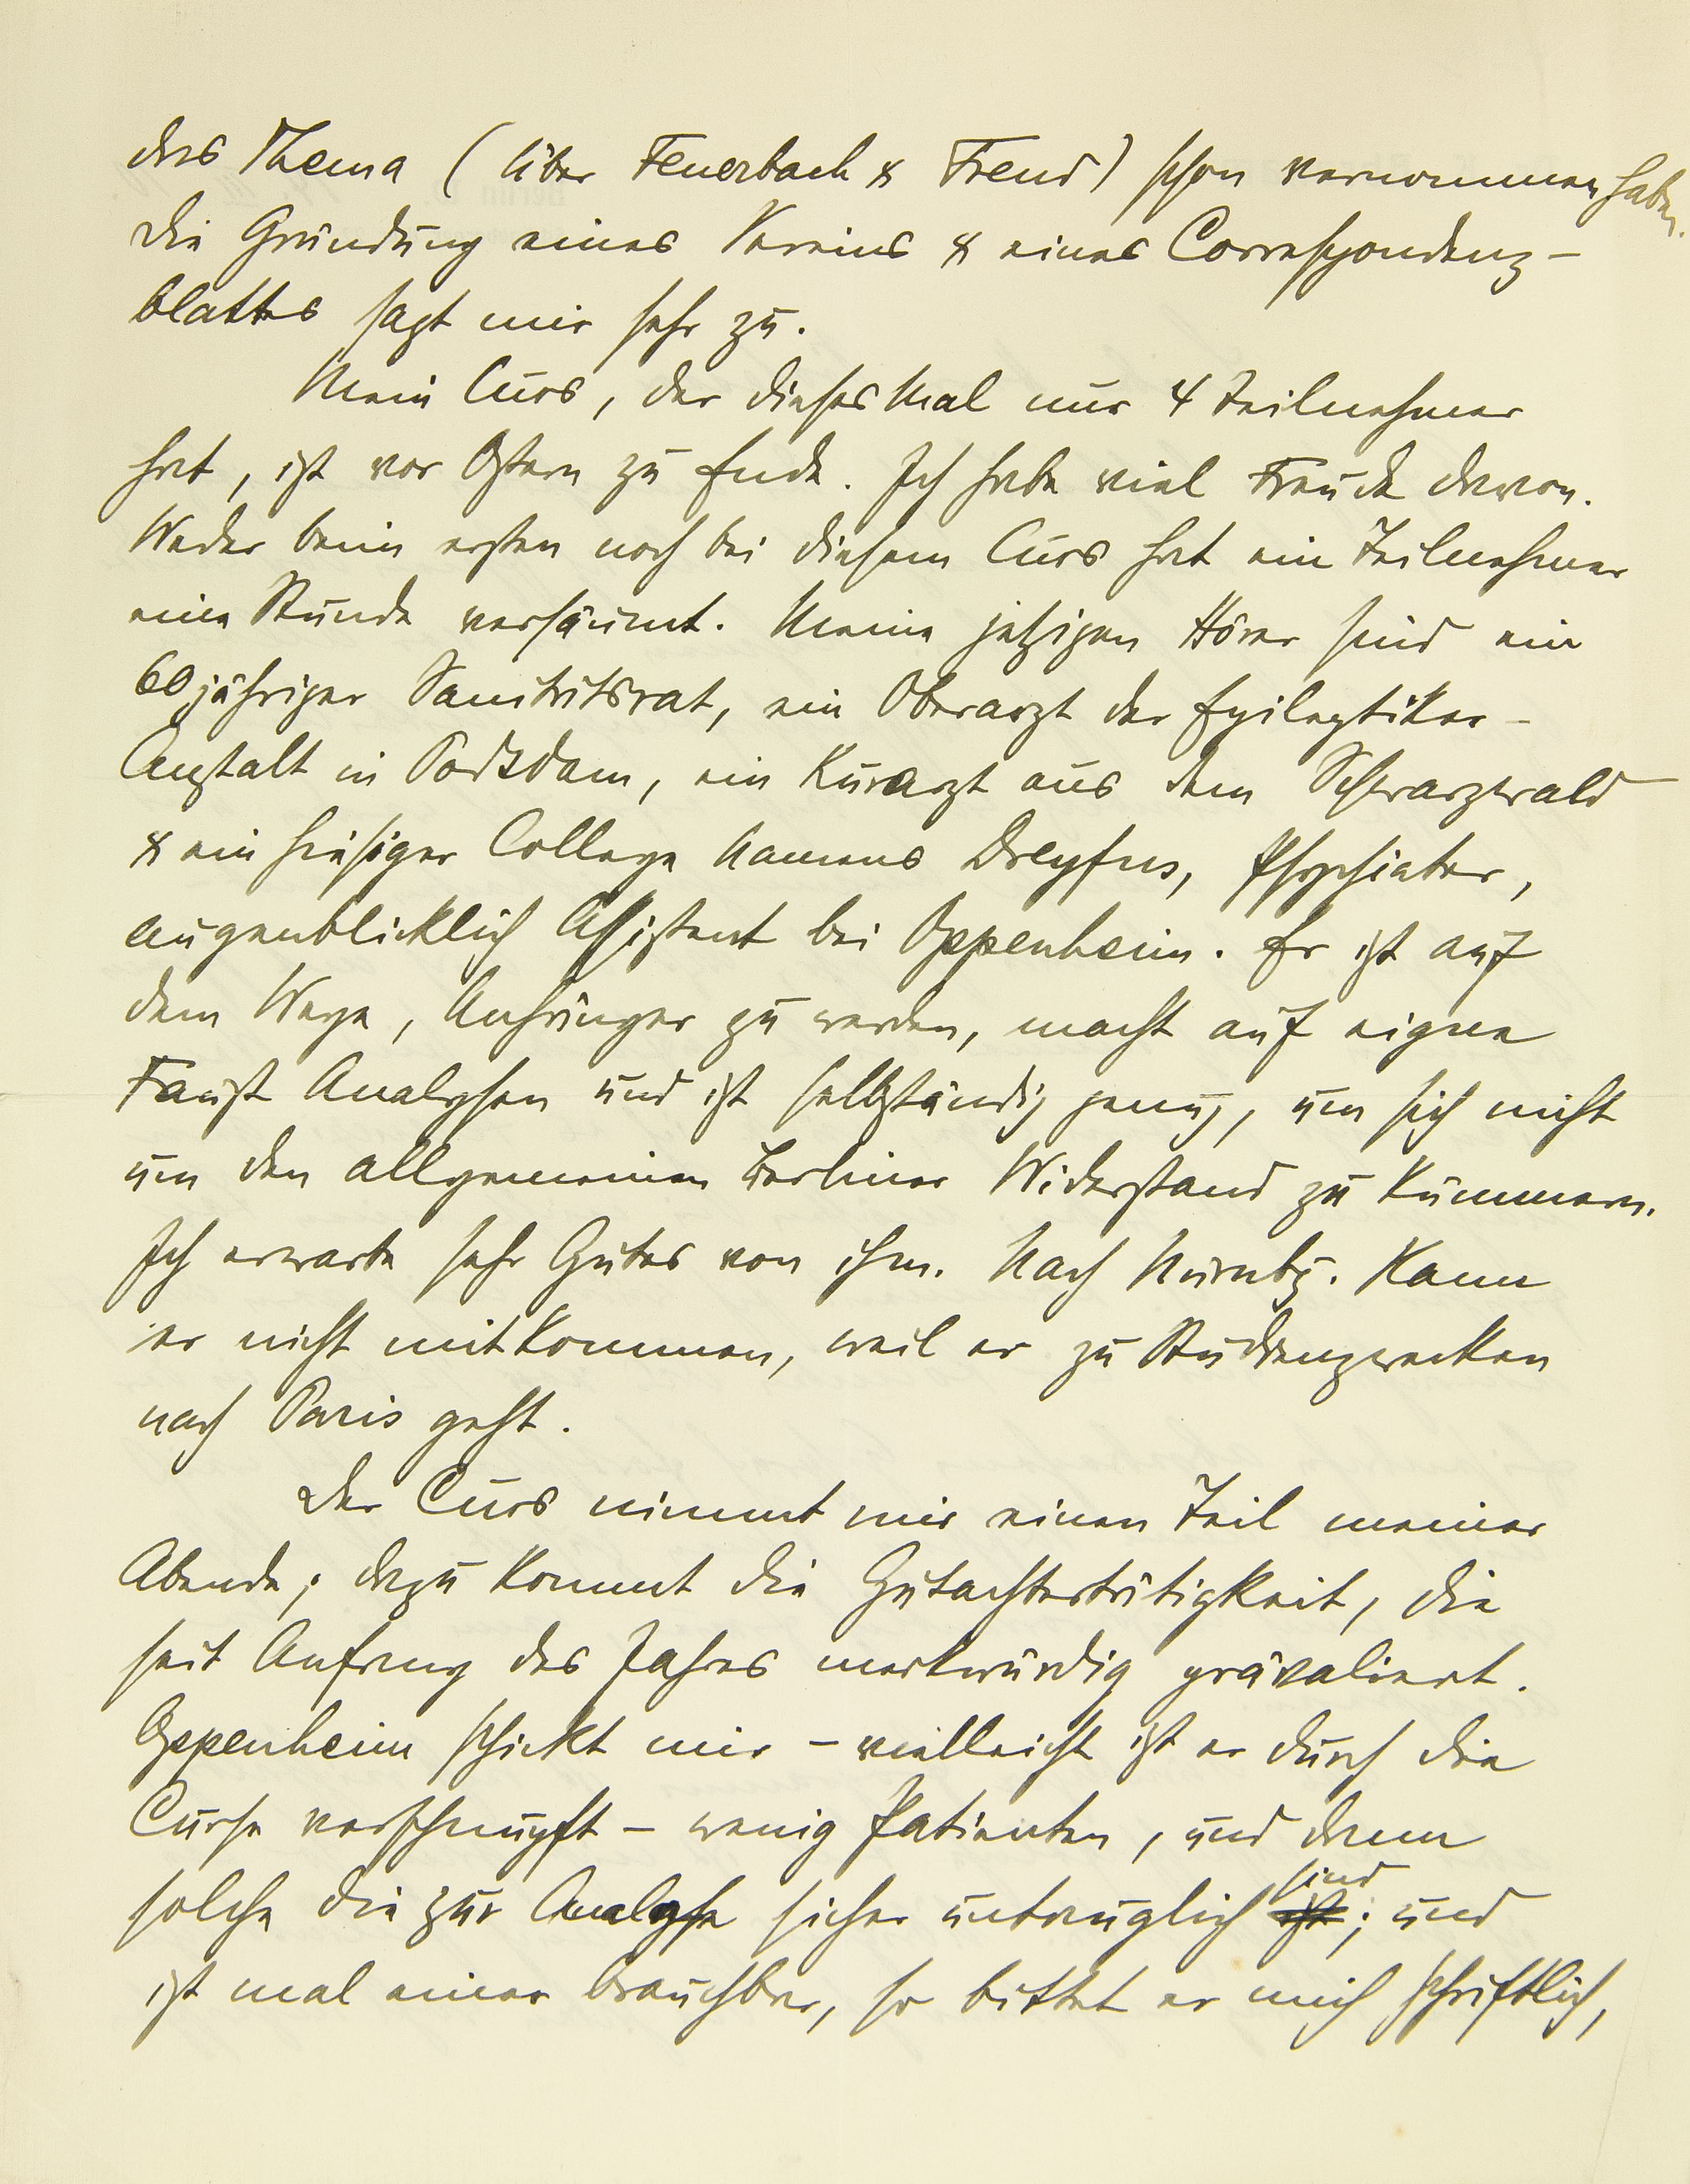 das Thema (über Feuerbach & Freud) schon vernommen haben.
Die Gründung eines Vereins & eines Correspondenz-
blattes sagt mir sehr zu.
Mein Curs, der dieses Mal nur 4 Teilnehmer
hat, ist vor Ostern zu Ende. Ich habe viel Freude davon.
Weder beim ersten noch bei diesem Curs hat ein Teilnehmer
eine Stunde versäumt. Meine jetzigen Hörer sind ein
60jähriger Sanitätsrat, ein Oberarzt der Epileptiker-
Anstalt in Potsdam, ein Kurarzt aus dem Schwarzwald
& ein hiesiger College Namens Dreyfus, Psychiater,
augenblicklich Assistent bei Oppenheim. Er ist auf
dem Wege, Anhänger zu werden, macht auf eigne
Faust Analysen und ist selbständig genug, um sich nicht
um den allgemeinen Berliner Widerstand zu kümmern.
Ich erwarte sehr Gutes von ihm. Nach Nürnbg. kann
er nicht mitkommen, weil er zu Studienzwecken
nach Paris geht.
Der Curs nimmt mir einen Teil meiner
Abende; dazu kommt die Gutachtertätigkeit, die
seit Anfang des Jahres merkwürdig prävaliert.
Oppenheim schickt mir – vielleicht ist er durch die
Curse verschnupft – wenig Patienten, und dann
solche die zur Analyse sicher untauglich ist sind; und
ist mal einer brauchbar, so bittet er mich schriftlich,